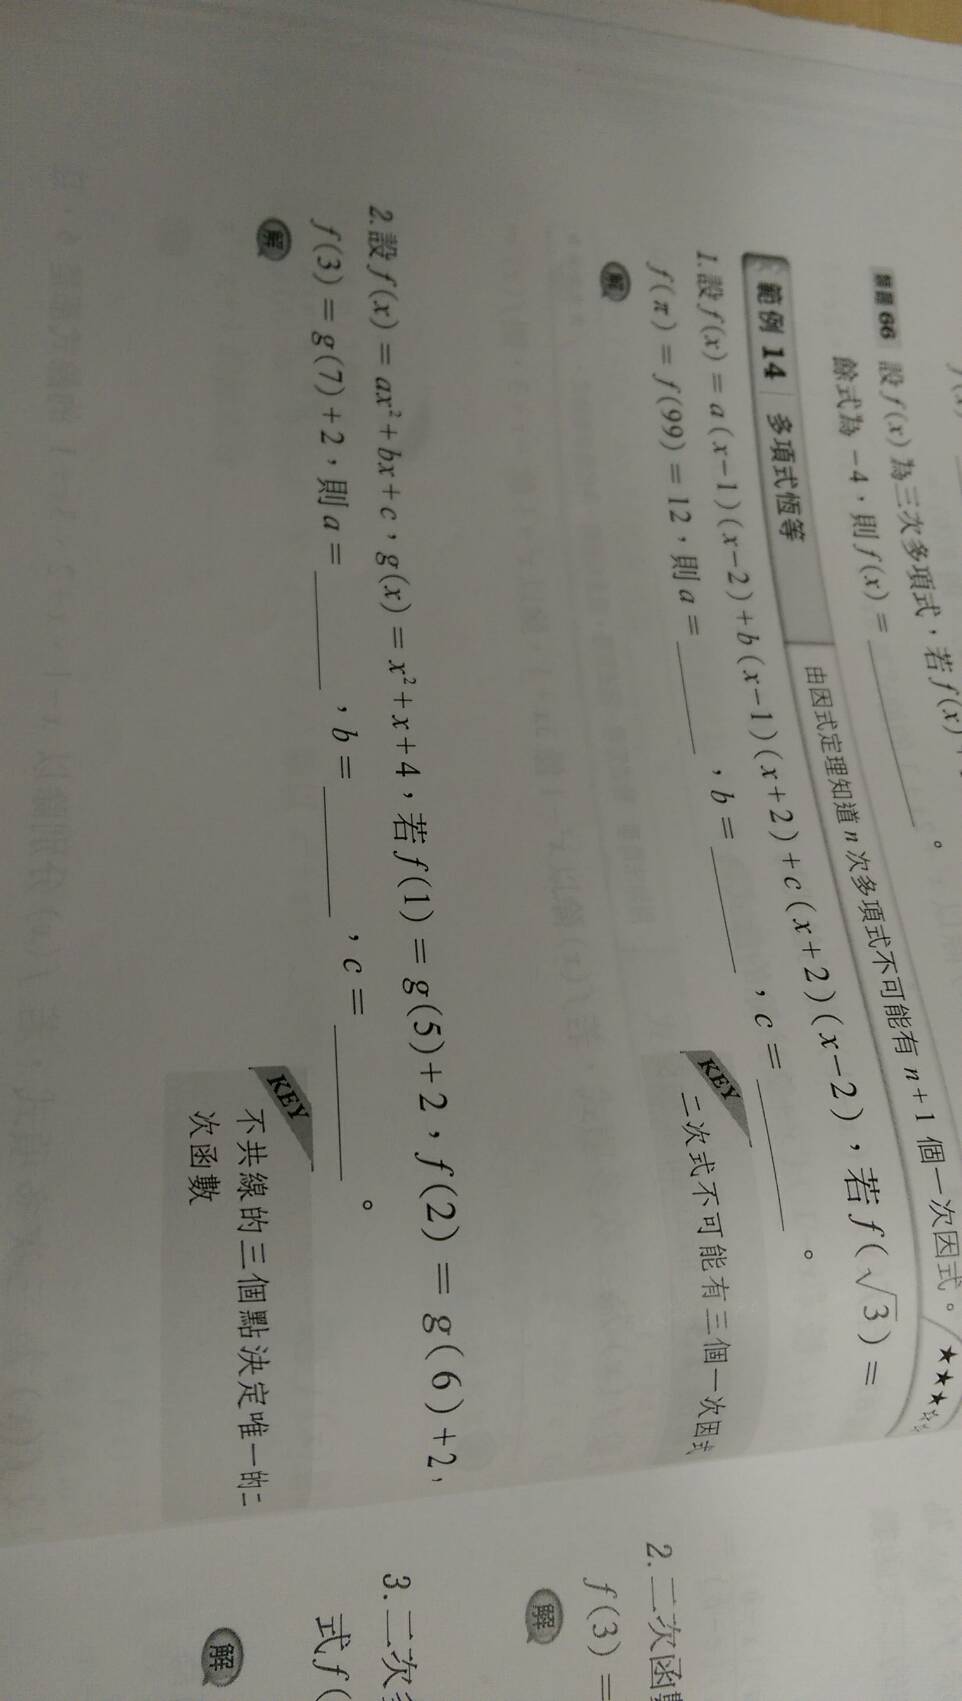 類題66 設f(x)為三次多項式，若f(x)
餘式為-4，則f(x)=______。
範例 14 多項式恆等 由因式定理知道n次多項式不可能有n+1個一次因式。★★★☆☆
1.設f(x)=a(x-1)(x-2)+b(x-1)(x+2)+c(x+2)(x-2)，若f(√3)=
f(π)=f(99)=12，則a=______，b=______，c=______。
解
KEY
二次式不可能有三個一次因式
2.設f(x)=ax²+bx+c，g(x)=x²+x+4，若f(1)=g(5)+2，f(2)=g(6)+2，
f(3)=g(7)+2，則a=______，b=______，c=______。
解
KEY
不共線的三個點決定唯一的二
次函數
2.二次函數
f(3)=
解
3.二次
式f(
解